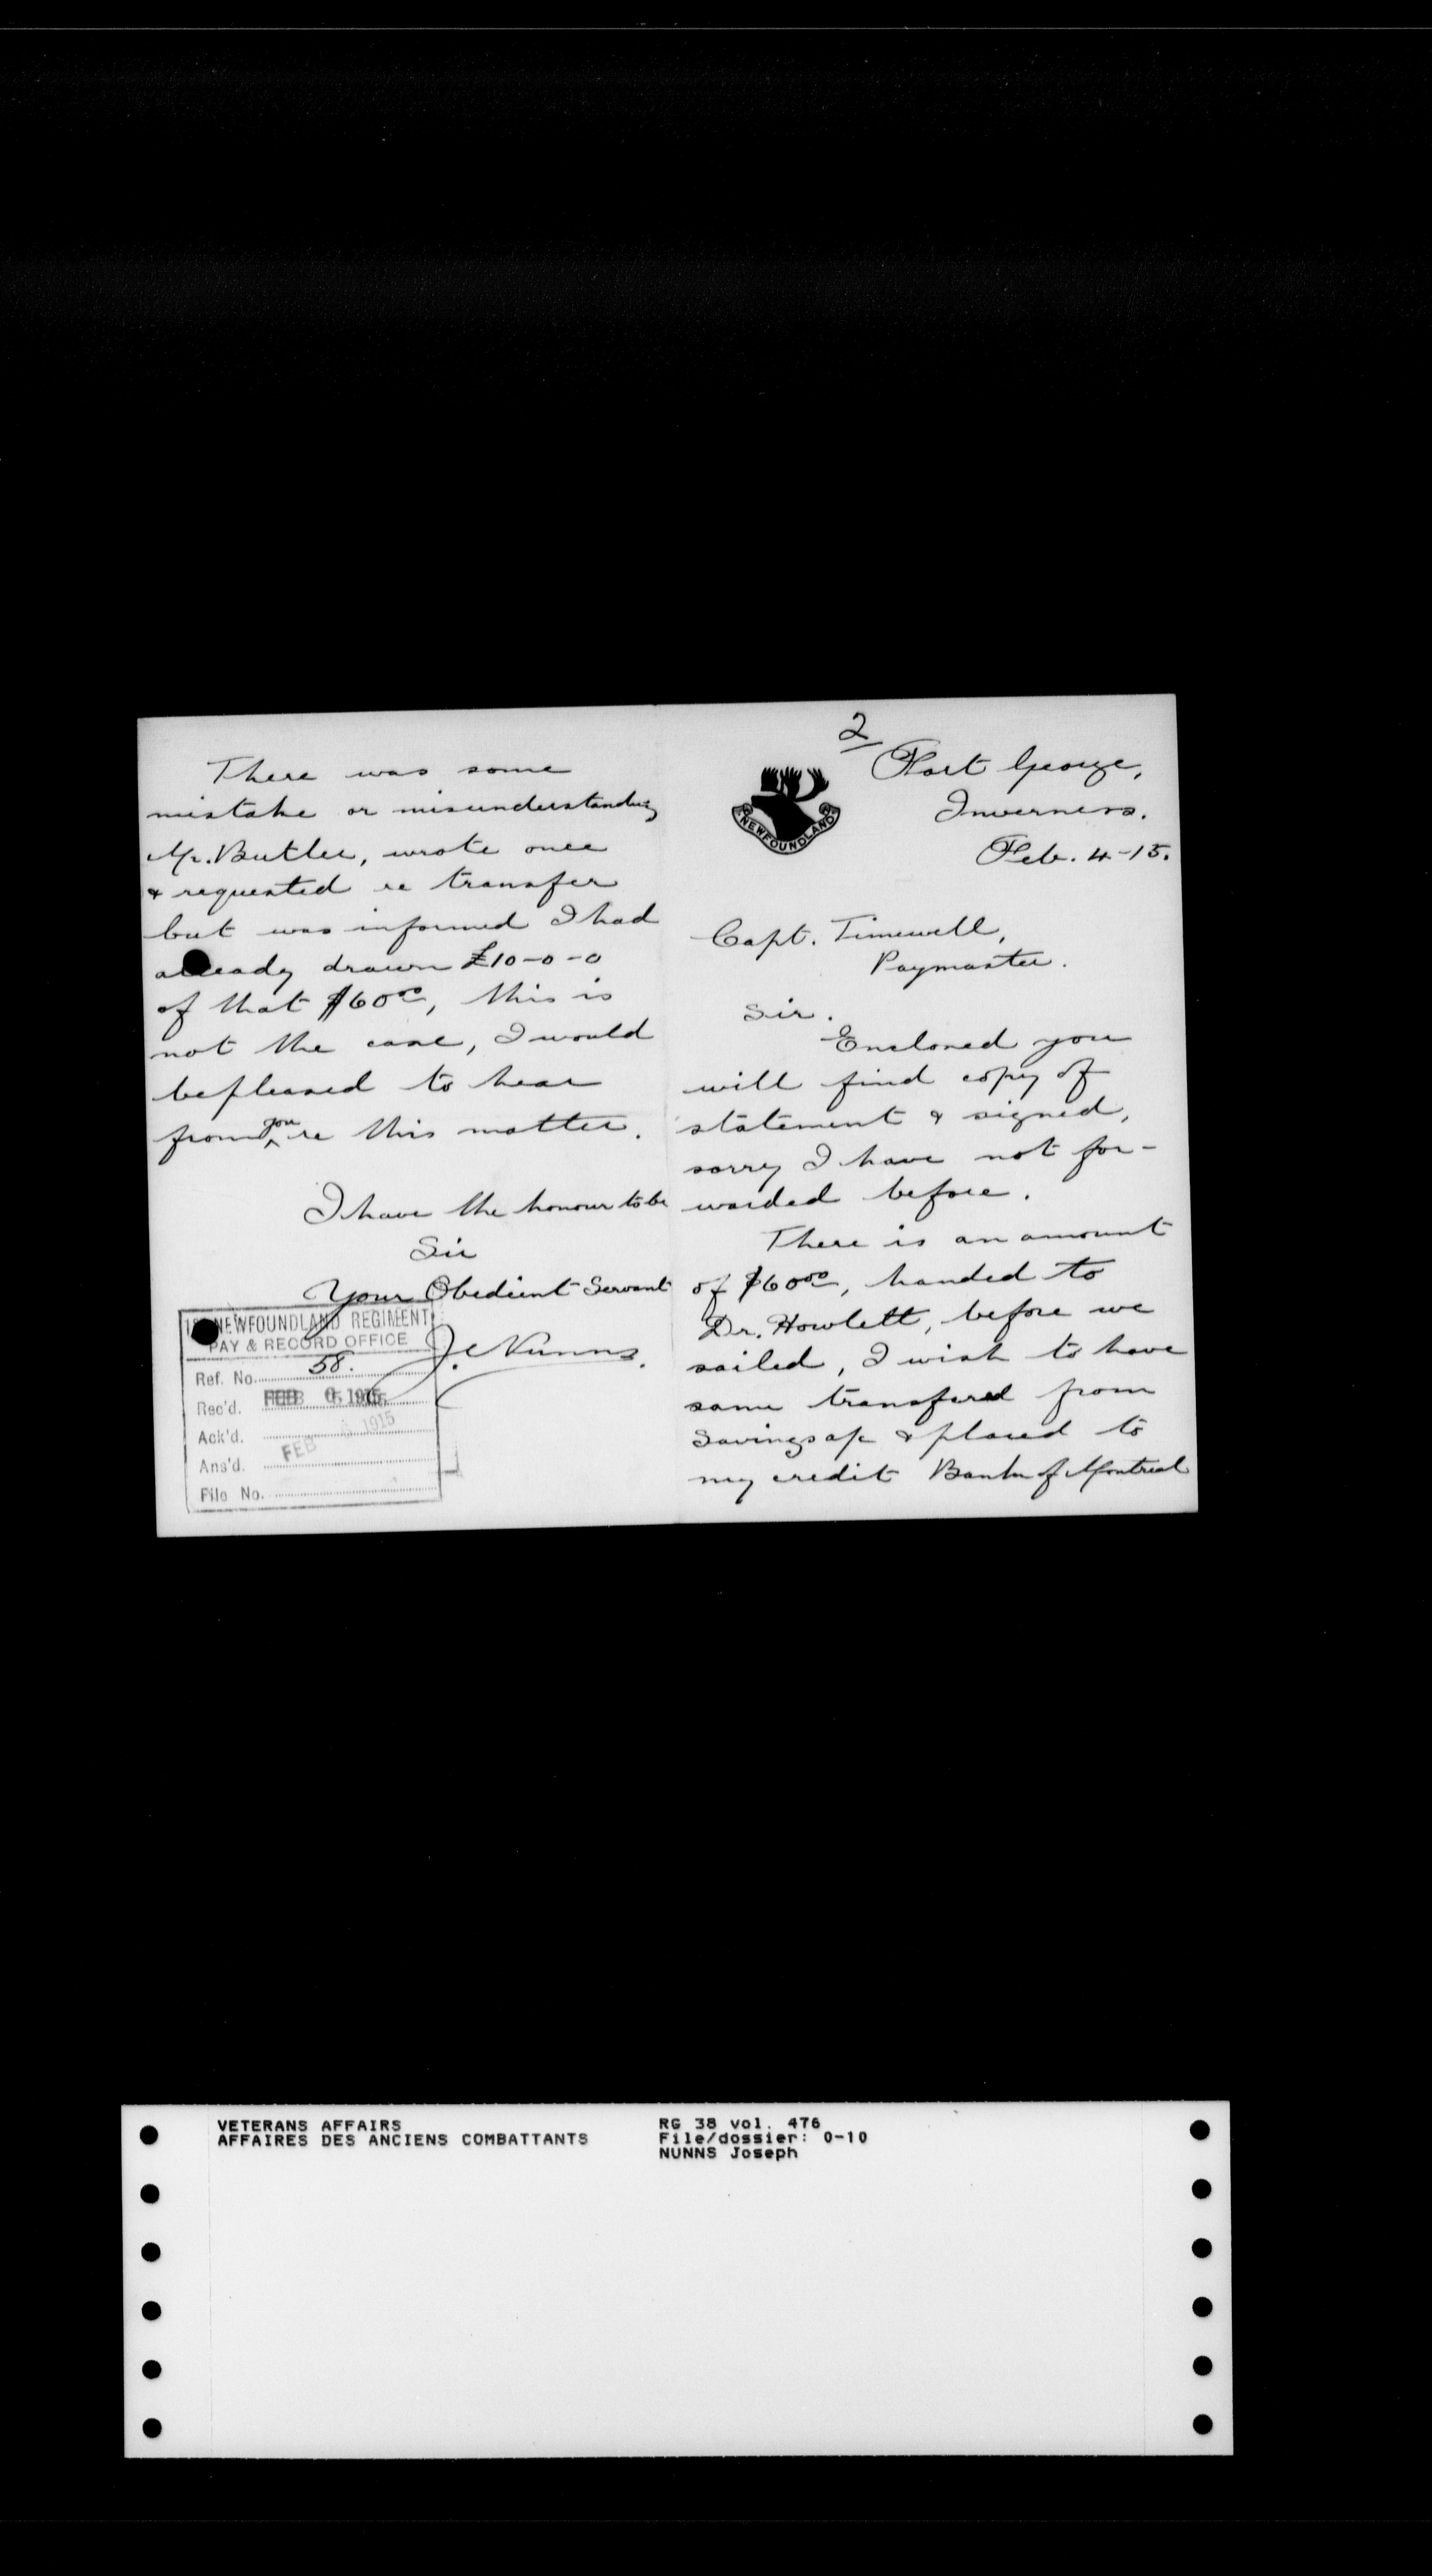 2
Fort George,
Inverness.
Feb. 4-15.
NEWFOUNDLAND
Capt. Timewell,
Paymaster.
Sir.
Enclosed you
will find copy of
statement & signed,
sorry I have not for-
warded before.
There is an amount
of $60.00, handed to
Dr. Howlett, before we
sailed, I wish to have
same transfered from
Savings a/c & placed to
my credit Bank of Montreal
There was some
mistake or misunderstanding
Mr. Butler, wrote once
& requested re transfer
but was informed I had
already drawn £10-0-0
of that $60.00, this is
not the case, I would
be pleased to hear
from you re this matter.
I have the honour to be
Sir
Your Obedient Servant
J. Nunns.
NEWFOUNDLAND REGIMENT
PAY & RECORD OFFICE
Ref. No. 58.
Rec'd. FEB 1915
Ack'd.
Ans'd. FEB 1915
File No.
VETERANS AFFAIRS
AFFAIRES DES ANCIENS COMBATTANTS
RG 38 vol. 476
File/dossier: 0-10
NUNNS Joseph